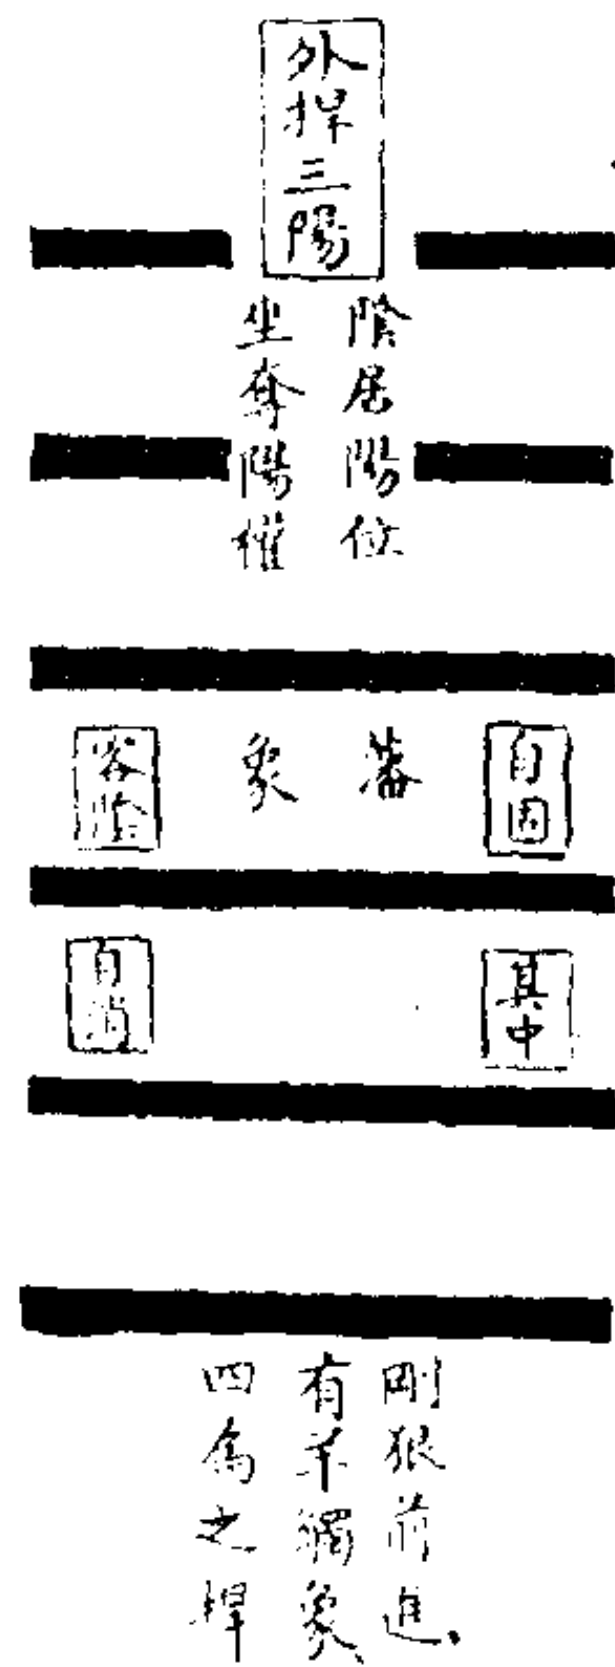 外捍三陽
陰居陽位
坐奪陽權
自固
藩
象
陰
其中
自消
剛狠前進、
有羊觸象、
四為之捍